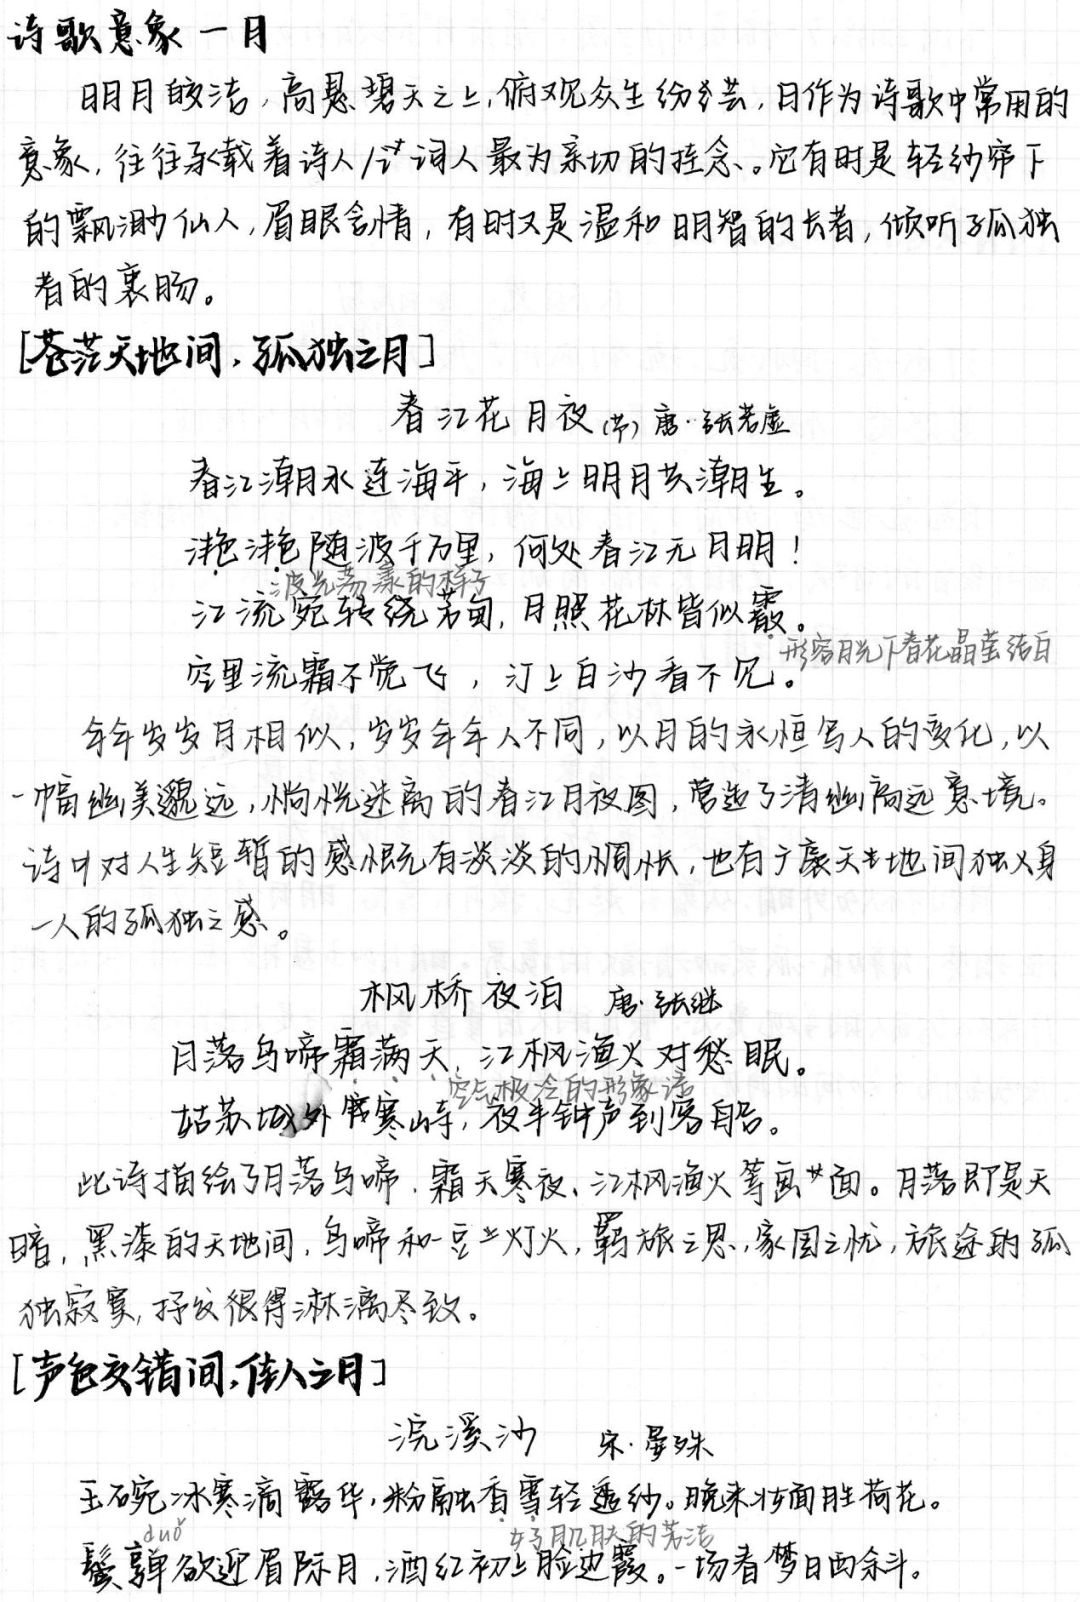 诗歌意象一月
明月皎洁，高悬碧天之上，俯观众生纷纭，月作为诗歌中常用的
意象，往往承载着诗人/词人最为亲切的挂念。它有时是轻纱帘下
的飘渺仙人，眉眼含情，有时又是温和明智的长者，倾听孤独
者的衷肠。
[苍茫天地间，孤独之月]
春江花月夜(节) 唐·张若虚
春江潮水连海平，海上明月共潮生。
滟滟随波千万里，何处春江无月明！
波光荡漾的样子
江流宛转绕芳甸，月照花林皆似霰。
形容月光下春花晶莹洁白
空里流霜不觉飞，汀上白沙看不见。
年年岁岁月相似，岁岁年年人不同，以月的永恒写人的变化，以
一幅幽美邈远，惝恍迷离的春江月夜图，营造了清幽高远意境。
诗中对人生短暂的感慨既有淡淡的惆怅，也有于寥天地间独身
一人的孤独之感。
枫桥夜泊 唐·张继
月落乌啼霜满天，江枫渔火对愁眠。
空气极冷的形象语
姑苏城外寒山寺，夜半钟声到客船。
此诗描绘了月落乌啼、霜天寒夜、江枫渔火等画面。月落即是天
暗，黑漆的天地间，乌啼和一豆灯火，羁旅之思，家国之忧，旅途的孤
独寂寞，抒发很得淋漓尽致。
[声色交错间，佳人之月]
浣溪沙 宋·晏殊
玉碗冰寒滴露华，粉融香雪轻透纱。晚来妆面胜荷花。
duǒ 好肌肤的芳洁
鬓亸欲迎眉际月，酒红初上脸边霞。一场春梦日西斜。